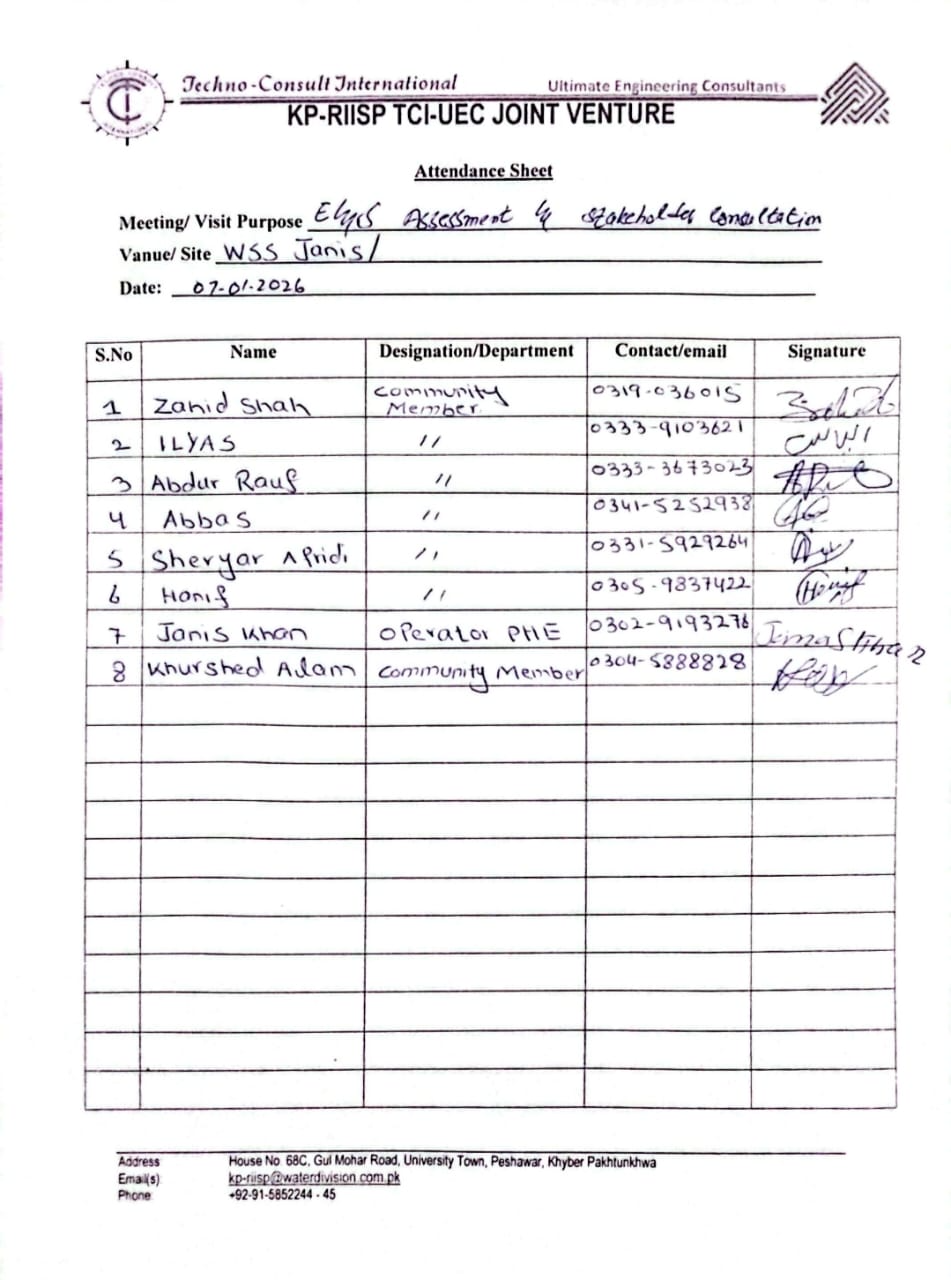 Techno-Consult International Ultimate Engineering Consultants
KP-RIISP TCI-UEC JOINT VENTURE
Attendance Sheet
Meeting/ Visit Purpose Assessment & stakeholder Consultation
Vanue/ Site WSS Janis/
Date: 07-01-2026
S.No Name Designation/Department Contact/email Signature
1 Zahid Shah Community Member 0319-036015
2 ILYAS " 0333-9103621
3 Abdur Rauf " 0333-3673023
4 Abbas " 0341-5252938
5 Sheryar Afridi " 0331-5929264
6 Hanif " 0305-9837422 Hanif
7 Janis Khan Operator PHE 0302-9193276
8 Khurshed Adam Community Member 0304-5888828
Address House No. 68C, Gul Mohar Road, University Town, Peshawar, Khyber Pakhtunkhwa
Email(s) kp-riisp@waterdivision.com.pk
Phone +92-91-5852244 - 45